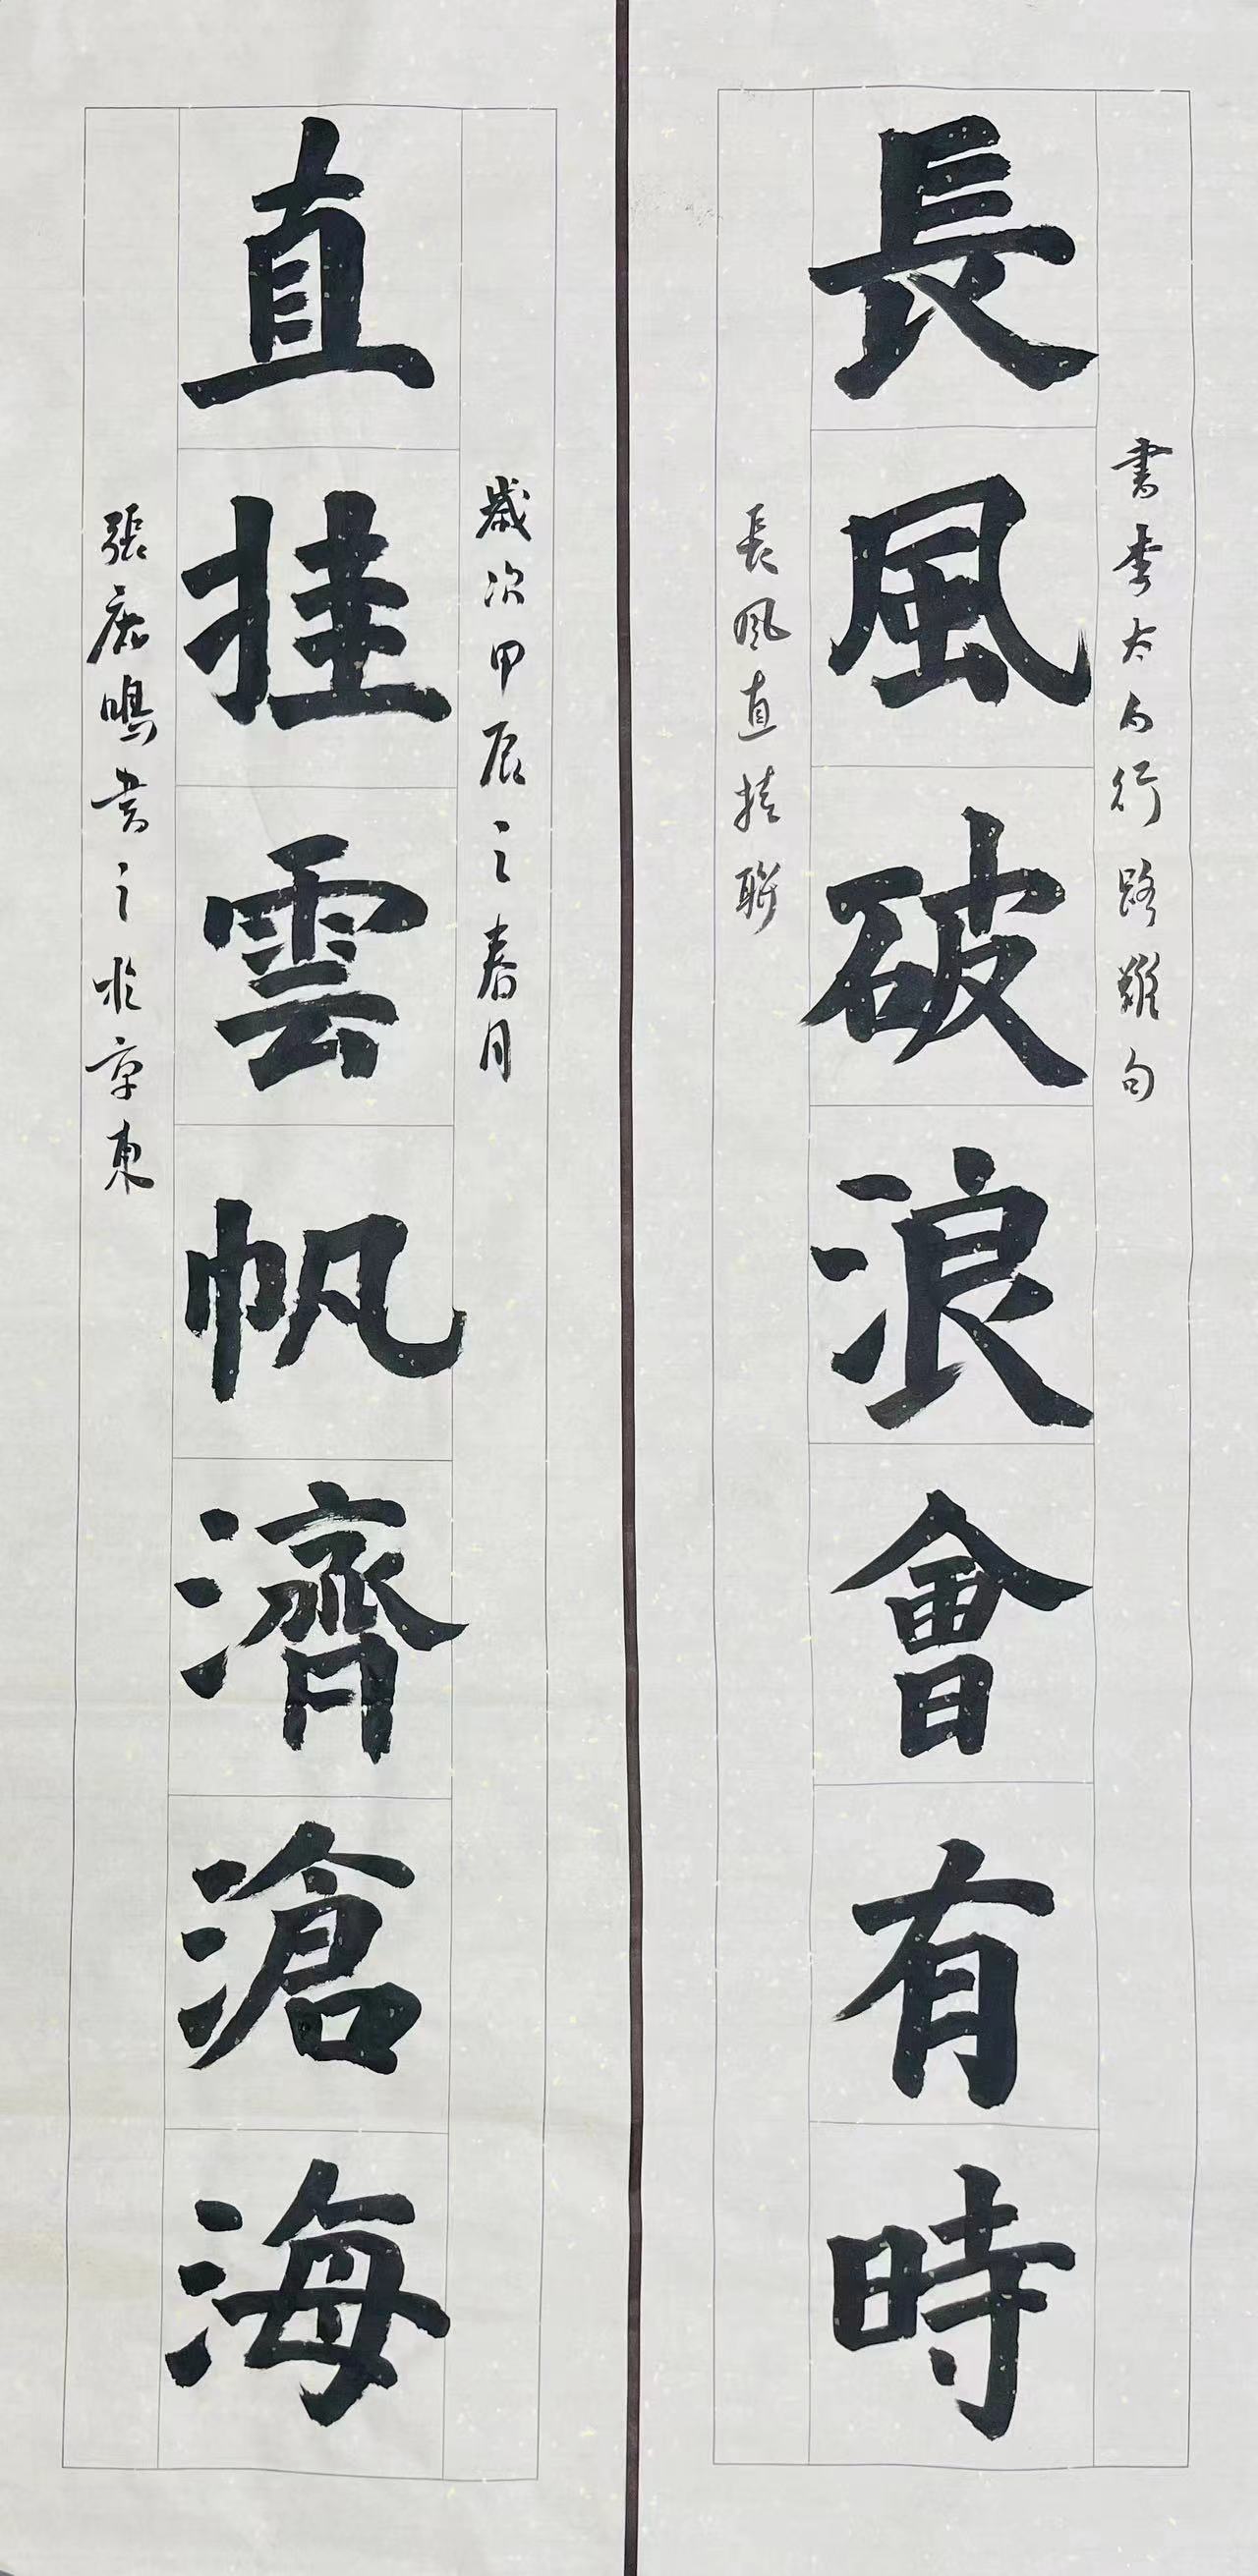 書李太白行路難句
長風破浪會有時
長風直挂聯
歲次甲辰之春月
直挂雲帆濟滄海
張鹿鳴書之於京東